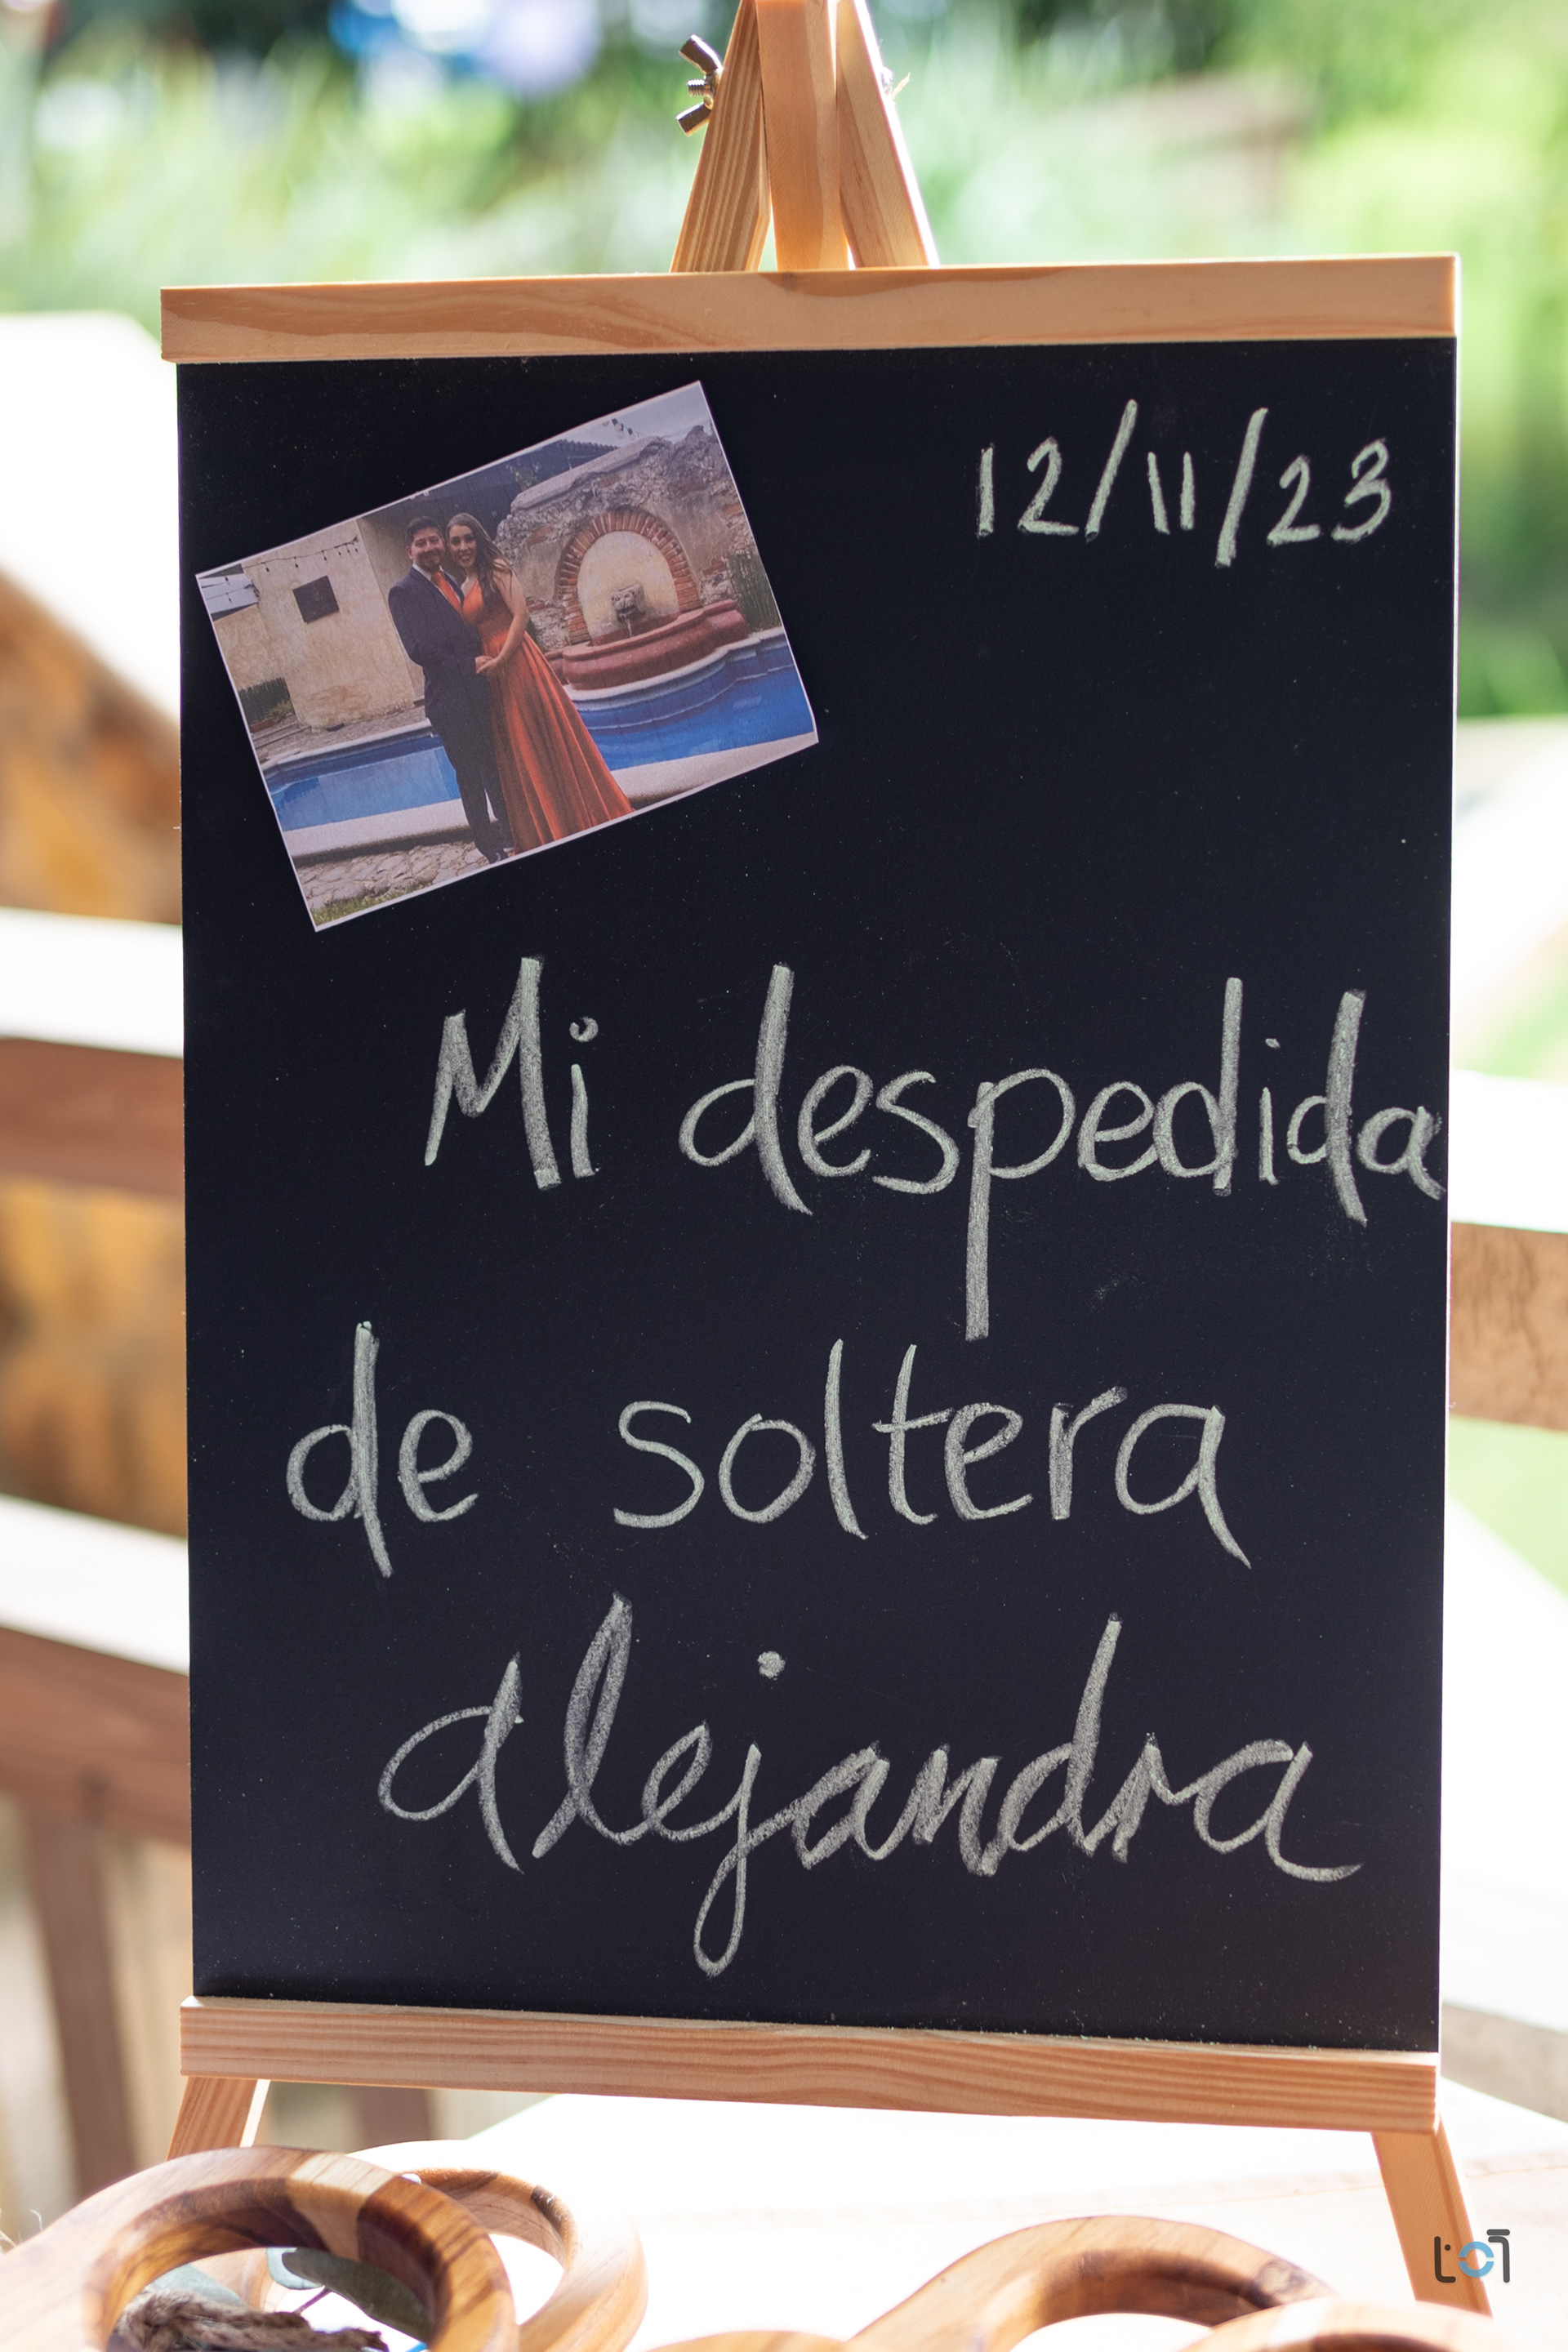 12/11/23
Mi despedida
de soltera
Alejandra